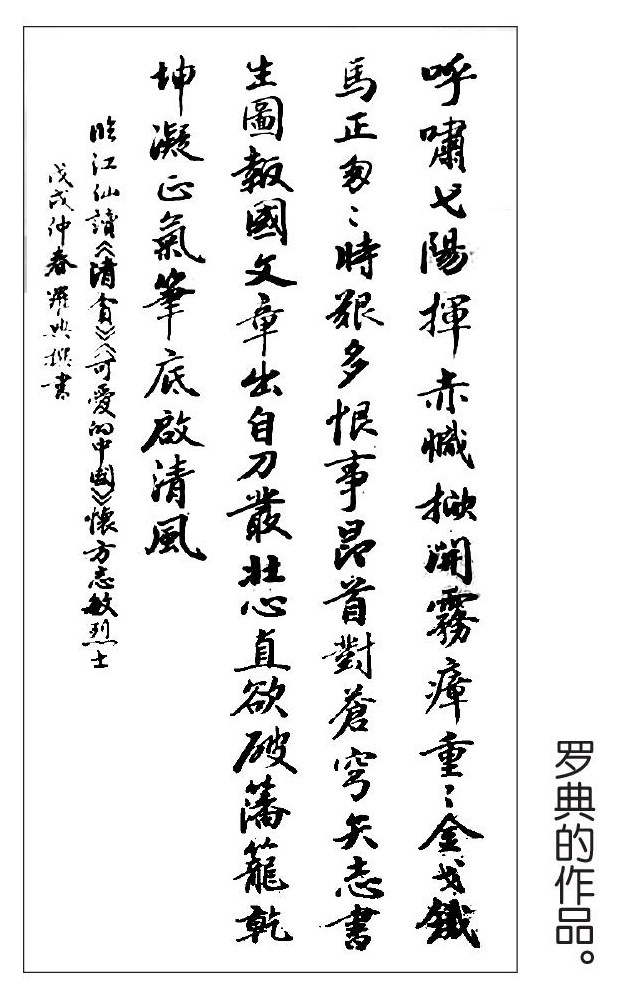 呼嘯弋陽揮赤幟掀開霧瘴重〻金戈鐵
馬正匆〻時艱多恨事昂首對蒼穹矢志書
生圖報國文章出自刀叢壯心直欲破藩籠乾
坤凝正氣筆底啟清風
臨江仙讀《清貧》《可愛的中國》懷方志敏烈士
戊戌仲春羅典撰書
罗典的作品。